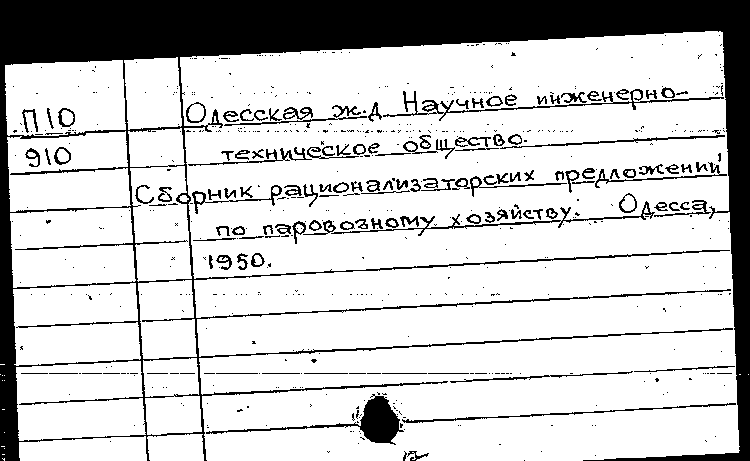 П10 Одесская ж.д Научное инженерно-
910 техническое общество.
Сборник рационализаторских предложений
по паровозному хозяйству. Одесса,
1950.